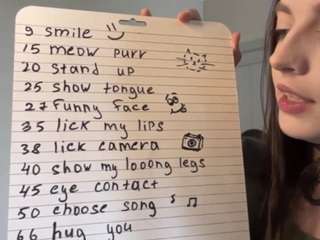 9 smile
15 meow purr
20 stand up
25 show tongue
27 funny face
35 lick my lips
38 lick camera
40 show my looong legs
45 eye contact
50 choose song
66 hug you